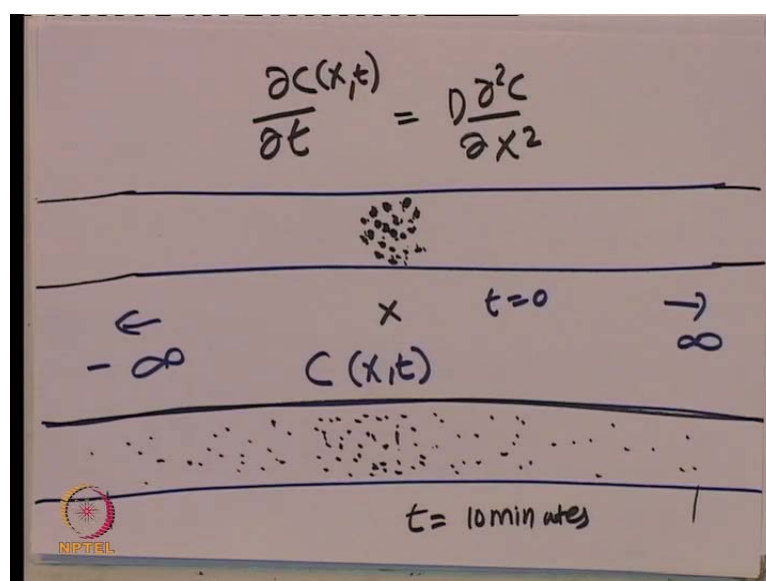 ∂C(x,t)/∂t = D ∂²C/∂x²
x t=0
← →
- ∞ ∞
C (x,t)
t = 10 minutes
NPTEL